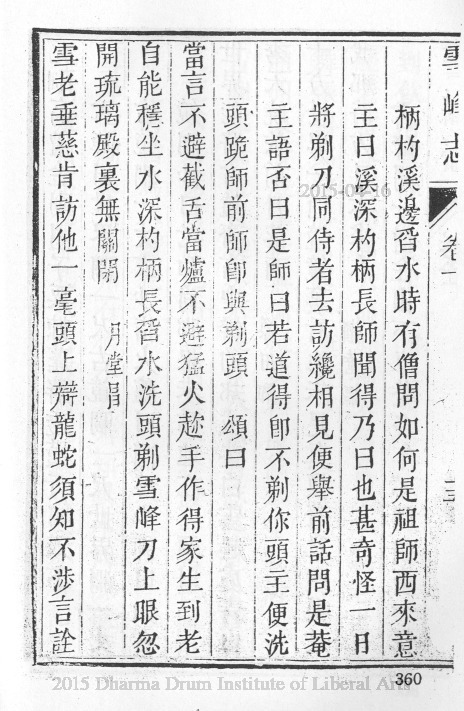 雪峰志
卷十
柄杓溪邊舀水時有僧問如何是祖師西來意
主曰溪深杓柄長師聞得乃曰也甚奇怪一日
將剃刀同侍者去訪纔相見便舉前話問是菴
主語否曰是師曰若道得卽不剃你頭主便洗
頭跪師前師卽與剃頭 頌曰
當言不避截舌當爐不避猛火趂手作得家生到老
自能穩坐水深杓柄長舀水洗頭剃雪峰刀上眼忽
開琉璃殿裏無關閉 月堂昌
雪老垂慈肯訪他一毫頭上辯龍蛇須知不涉言詮
2015-04-16
360
2015 Dharma Drum Institute of Liberal Arts